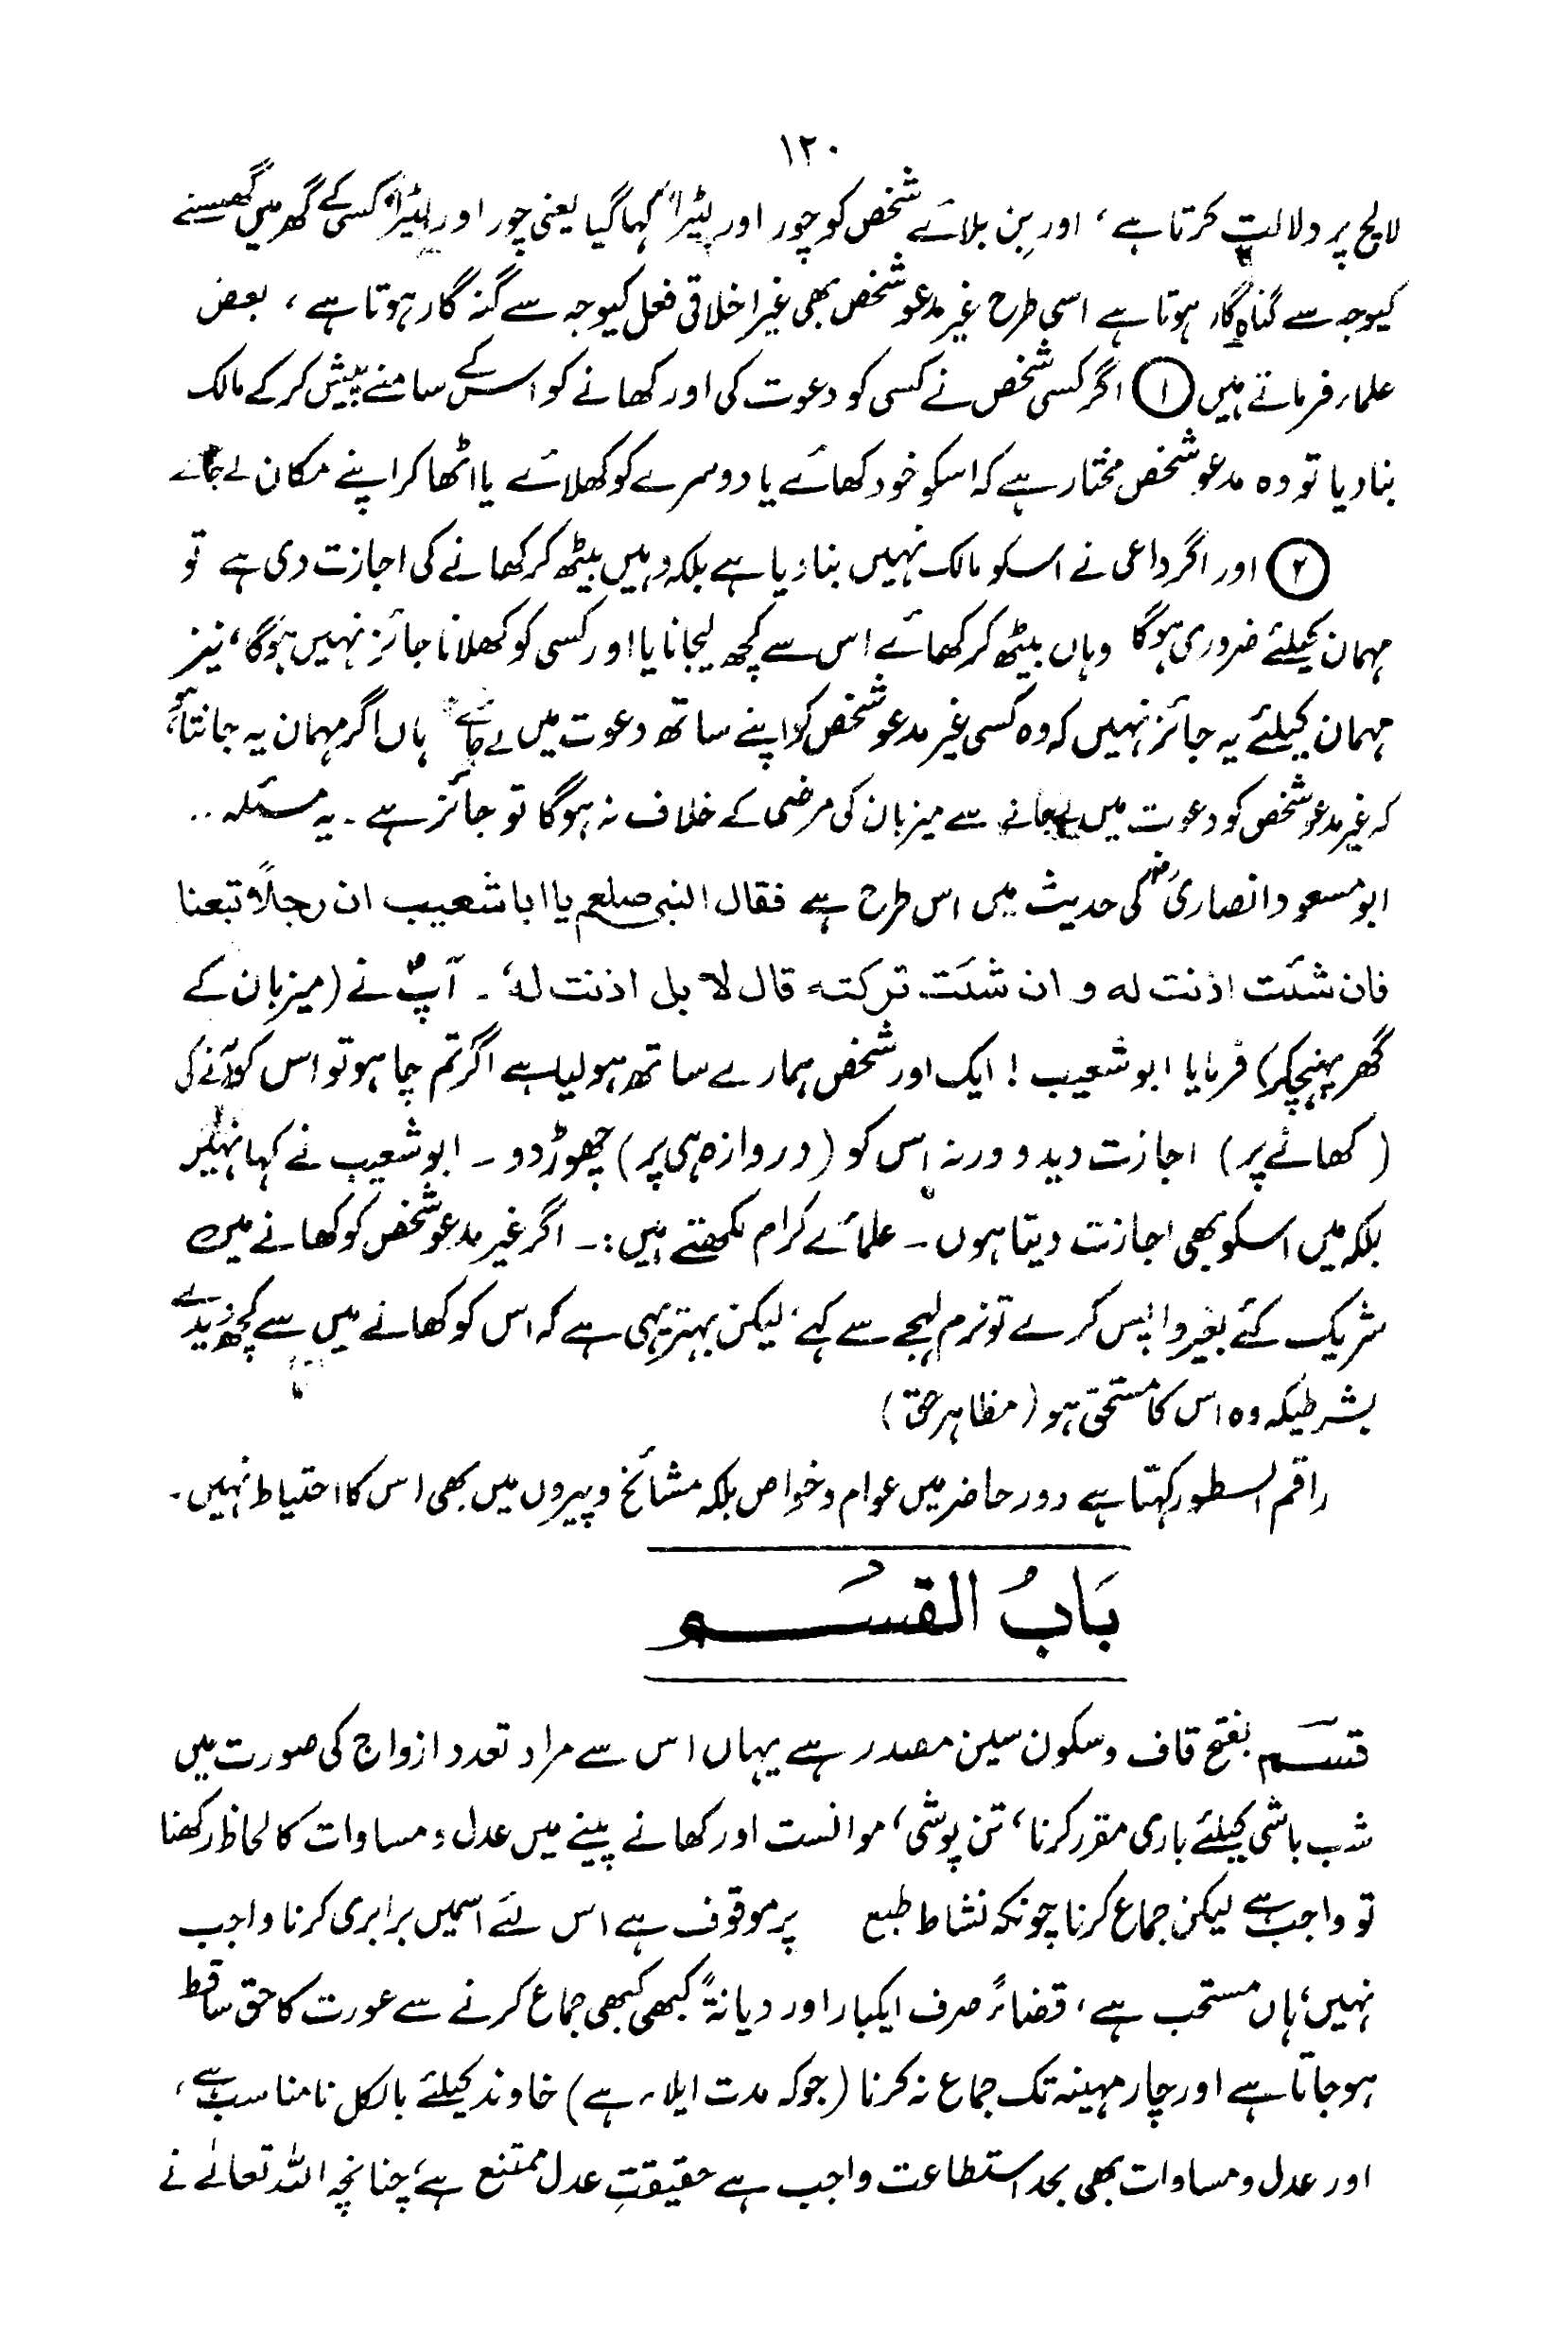 ۱۲۰
لالچ پر دلالت کرتا ہے ، اور بِن بلائے شخص کو چور اور لٹیرا کہا گیا یعنی چور اور لٹیرا کسی کے گھر میں گھسنے
کیوجہ سے گناہ گار ہوتا ہے اسی طرح غیر مدعو شخص بھی غیر اخلاقی فعل کیوجہ سے گنہ گار ہوتا ہے ، بعض
علماء فرماتے ہیں ① اگر کسی شخص نے کسی کو دعوت کی اور کھانے کو اس کے سامنے پیش کر کے مالک
بنا دیا تو وہ مدعو شخص مختار ہے کہ اسکو خود کھائے یا دوسرے کو کھلائے یا اٹھا کر اپنے مکان لے جائے
② اور اگر داعی نے اسکو مالک نہیں بنا دیا ہے بلکہ وہیں بیٹھ کر کھانے کی اجازت دی ہے تو
مہمان کیلئے ضروری ہوگا وہاں بیٹھ کر کھائے اس سے کچھ لیجانا یا اور کسی کو کھلانا جائز نہیں ہوگا ، نیز
مہمان کیلئے یہ جائز نہیں کہ وہ کسی غیر مدعو شخص کو اپنے ساتھ دعوت میں لے جائے ہاں اگر مہمان یہ جانتا ہے
کہ غیر مدعو شخص کو دعوت میں لے جانے سے میزبان کی مرضی کے خلاف نہ ہوگا تو جائز ہے ۔ یہ مسئلہ ..
ابو مسعود انصاریؓ کی حدیث میں اس طرح ہے فقال النبی صلعم یا ابا شعیب ان رجلاً تبعنا
فان شئت اذنت له و ان شئت ترکته قال لا بل اذنت له ۔ آپؐ نے (میزبان کے
گھر پہنچکر) فرمایا ابو شعیب ! ایک اور شخص ہمارے ساتھ ہولیا ہے اگر تم چاہو تو اس کو آنے کی
(کھانے پر) اجازت دیدو ورنہ اس کو (دروازہ ہی پر) چھوڑ دو ۔ ابو شعیب نے کہا نہیں
بلکہ میں اسکو بھی اجازت دیتا ہوں ۔ علمائے کرام لکھتے ہیں :۔ اگر غیر مدعو شخص کو کھانے میں
شریک کئے بغیر واپس کرے تو نرم لہجے سے کہے ، لیکن بہتر یہی ہے کہ اس کو کھانے میں سے کچھ دیدے
بشرطیکہ وہ اس کا مستحق ہو (مظاہر حق)
راقم السطور کہتا ہے دور حاضر میں عوام و خواص بلکہ مشائخ و پیروں میں بھی اس کا احتیاط نہیں ۔
بَابُ القسم
قسم بفتح قاف و سکون سین مصدر ہے یہاں اس سے مراد تعدد ازواج کی صورت میں
شب باشی کیلئے باری مقرر کرنا ، تن پوشی ، موانست اور کھانے پینے میں عدل و مساوات کا لحاظ رکھنا
تو واجب ہے لیکن جماع کرنا چونکہ نشاط طبع پر موقوف ہے اس لئے اسمیں برابری کرنا واجب
نہیں ، ہاں مستحب ہے ، قضاءً صرف ایکبار اور دیانۃً کبھی کبھی جماع کرنے سے عورت کا حق ساقط
ہوجاتا ہے اور چار مہینہ تک جماع نہ کرنا (جو کہ مدت ایلاء ہے) خاوند کیلئے بالکل نامناسب ہے ،
اور عدل و مساوات بھی بحد استطاعت واجب ہے حقیقتِ عدل ممتنع ہے ، چنانچہ اللہ تعالیٰ نے